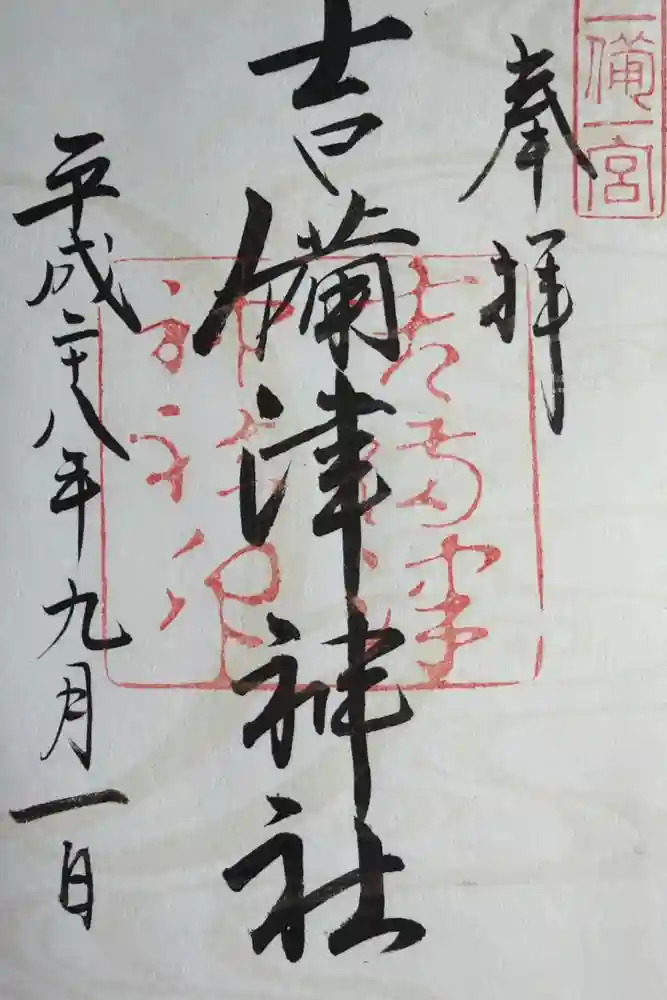 備一宮
奉拝
吉備津神社
平成二十八年九月一日
吉備津